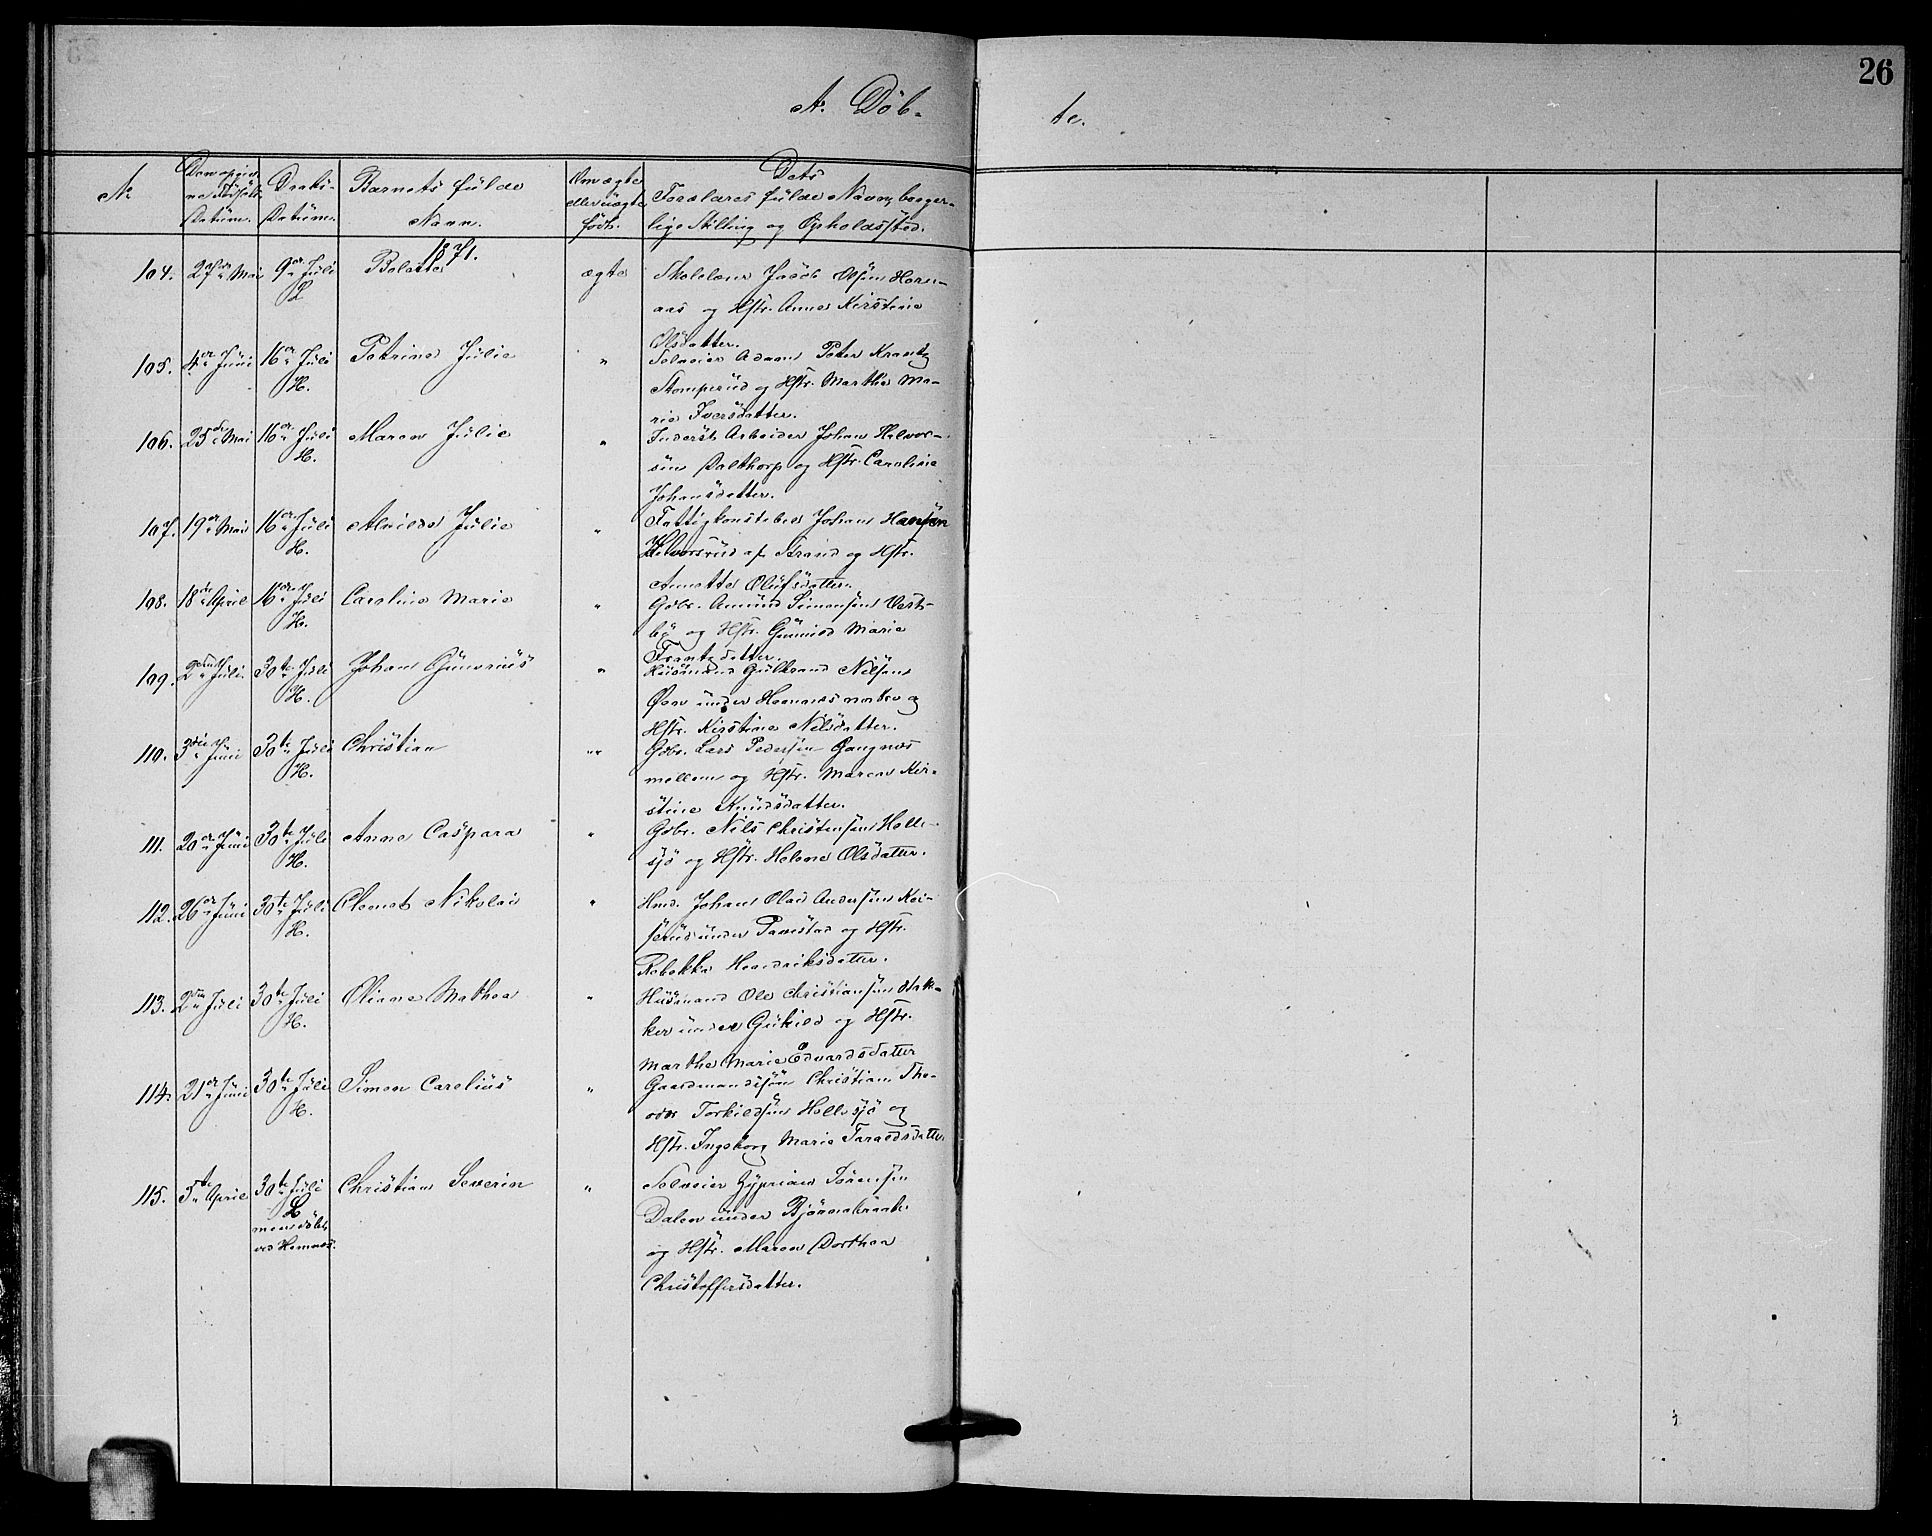 26
A. Döb-
te.
No
Den opgiv-
ne Födsels-
Datum.
Daabs-
Datum.
Barnets fulde
Navn.
Om ægte
eller uægte
födt.
Dets
Forældres fulde Navn, borger-
lige Stilling og Opholdssted.
1871.
104. 27de Mai 9de Juli Bolette ægte Skolelærer Jacob Olsen Horn-
L aas og Hstr. Anne Kirstine
Olsdatter.
105. 4de Juni 16de Juli Petrine Julie " Selveier Adam Peter Krantz
H. Stomperud og Hstr. Marthe Ma-
rie Iversdatter.
106. 25de Mai 16de Juli Maren Julie " Inderst Arbeider Johan Halvor-
H. sen Dalthorp og Hstr. Caroline
Johansdatter.
107. 19de Mai 16de Juli Alvilde Julie " Fattigkonstabel Johan Hansen
H. Halvorsrud af Strand og Hstr.
Annette Olufsdatter.
108. 18de April 16de Juli Caroline Marie " Gdbr. Amund Simensen Vest-
H. by og Hstr. Gunnild Marie
Frantzdatter.
109. 2den Juli 30te Juli Johan Gunerius " Husmand Gulbrand Nilsen
H. Öen under Hemnæs marken og
Hstr. Kirstine Nilsdatter.
110. 3die Juni 30te Juli Christian "" Gdbr. Lars Pedersen Gangnæs
H. mellem og Hstr. Maren Kir-
stine Knudsdatter.
111. 20de Juni 30te Juli Anne Caspara " Gdbr. Nils Christensen Helle-
H. sjö og Hstr. Helene Olsdatter.
112. 26de Juni 30te Juli Clemet Nikolai " Hmd. Johan Olaus Andersen Kei-
H. serud under Tanestad og Hstr.
Rebekka Hendriksdatter.
113. 2den Juli 30te Juli Oliane Mathea " Husmand Ole Christiansen Bak-
H. ker under Gukild og Hstr.
Marthe Marie Edvardsdatter
114. 21de Juni 30te Juli Simen Carelius " Gaardmandssön Christian Theo-
H. dor Torkildsen Hellesjö og
Hstr. Ingeborg Marie Taraldsdatter
115. 5te April 30te Juli Christian Severin " Selveier Zyprian Sörensen
L Dalen under Bjönnebraate
men döbt og Hstr. Maren Dorthea
ved Hemnæs. Christoffersdatter.